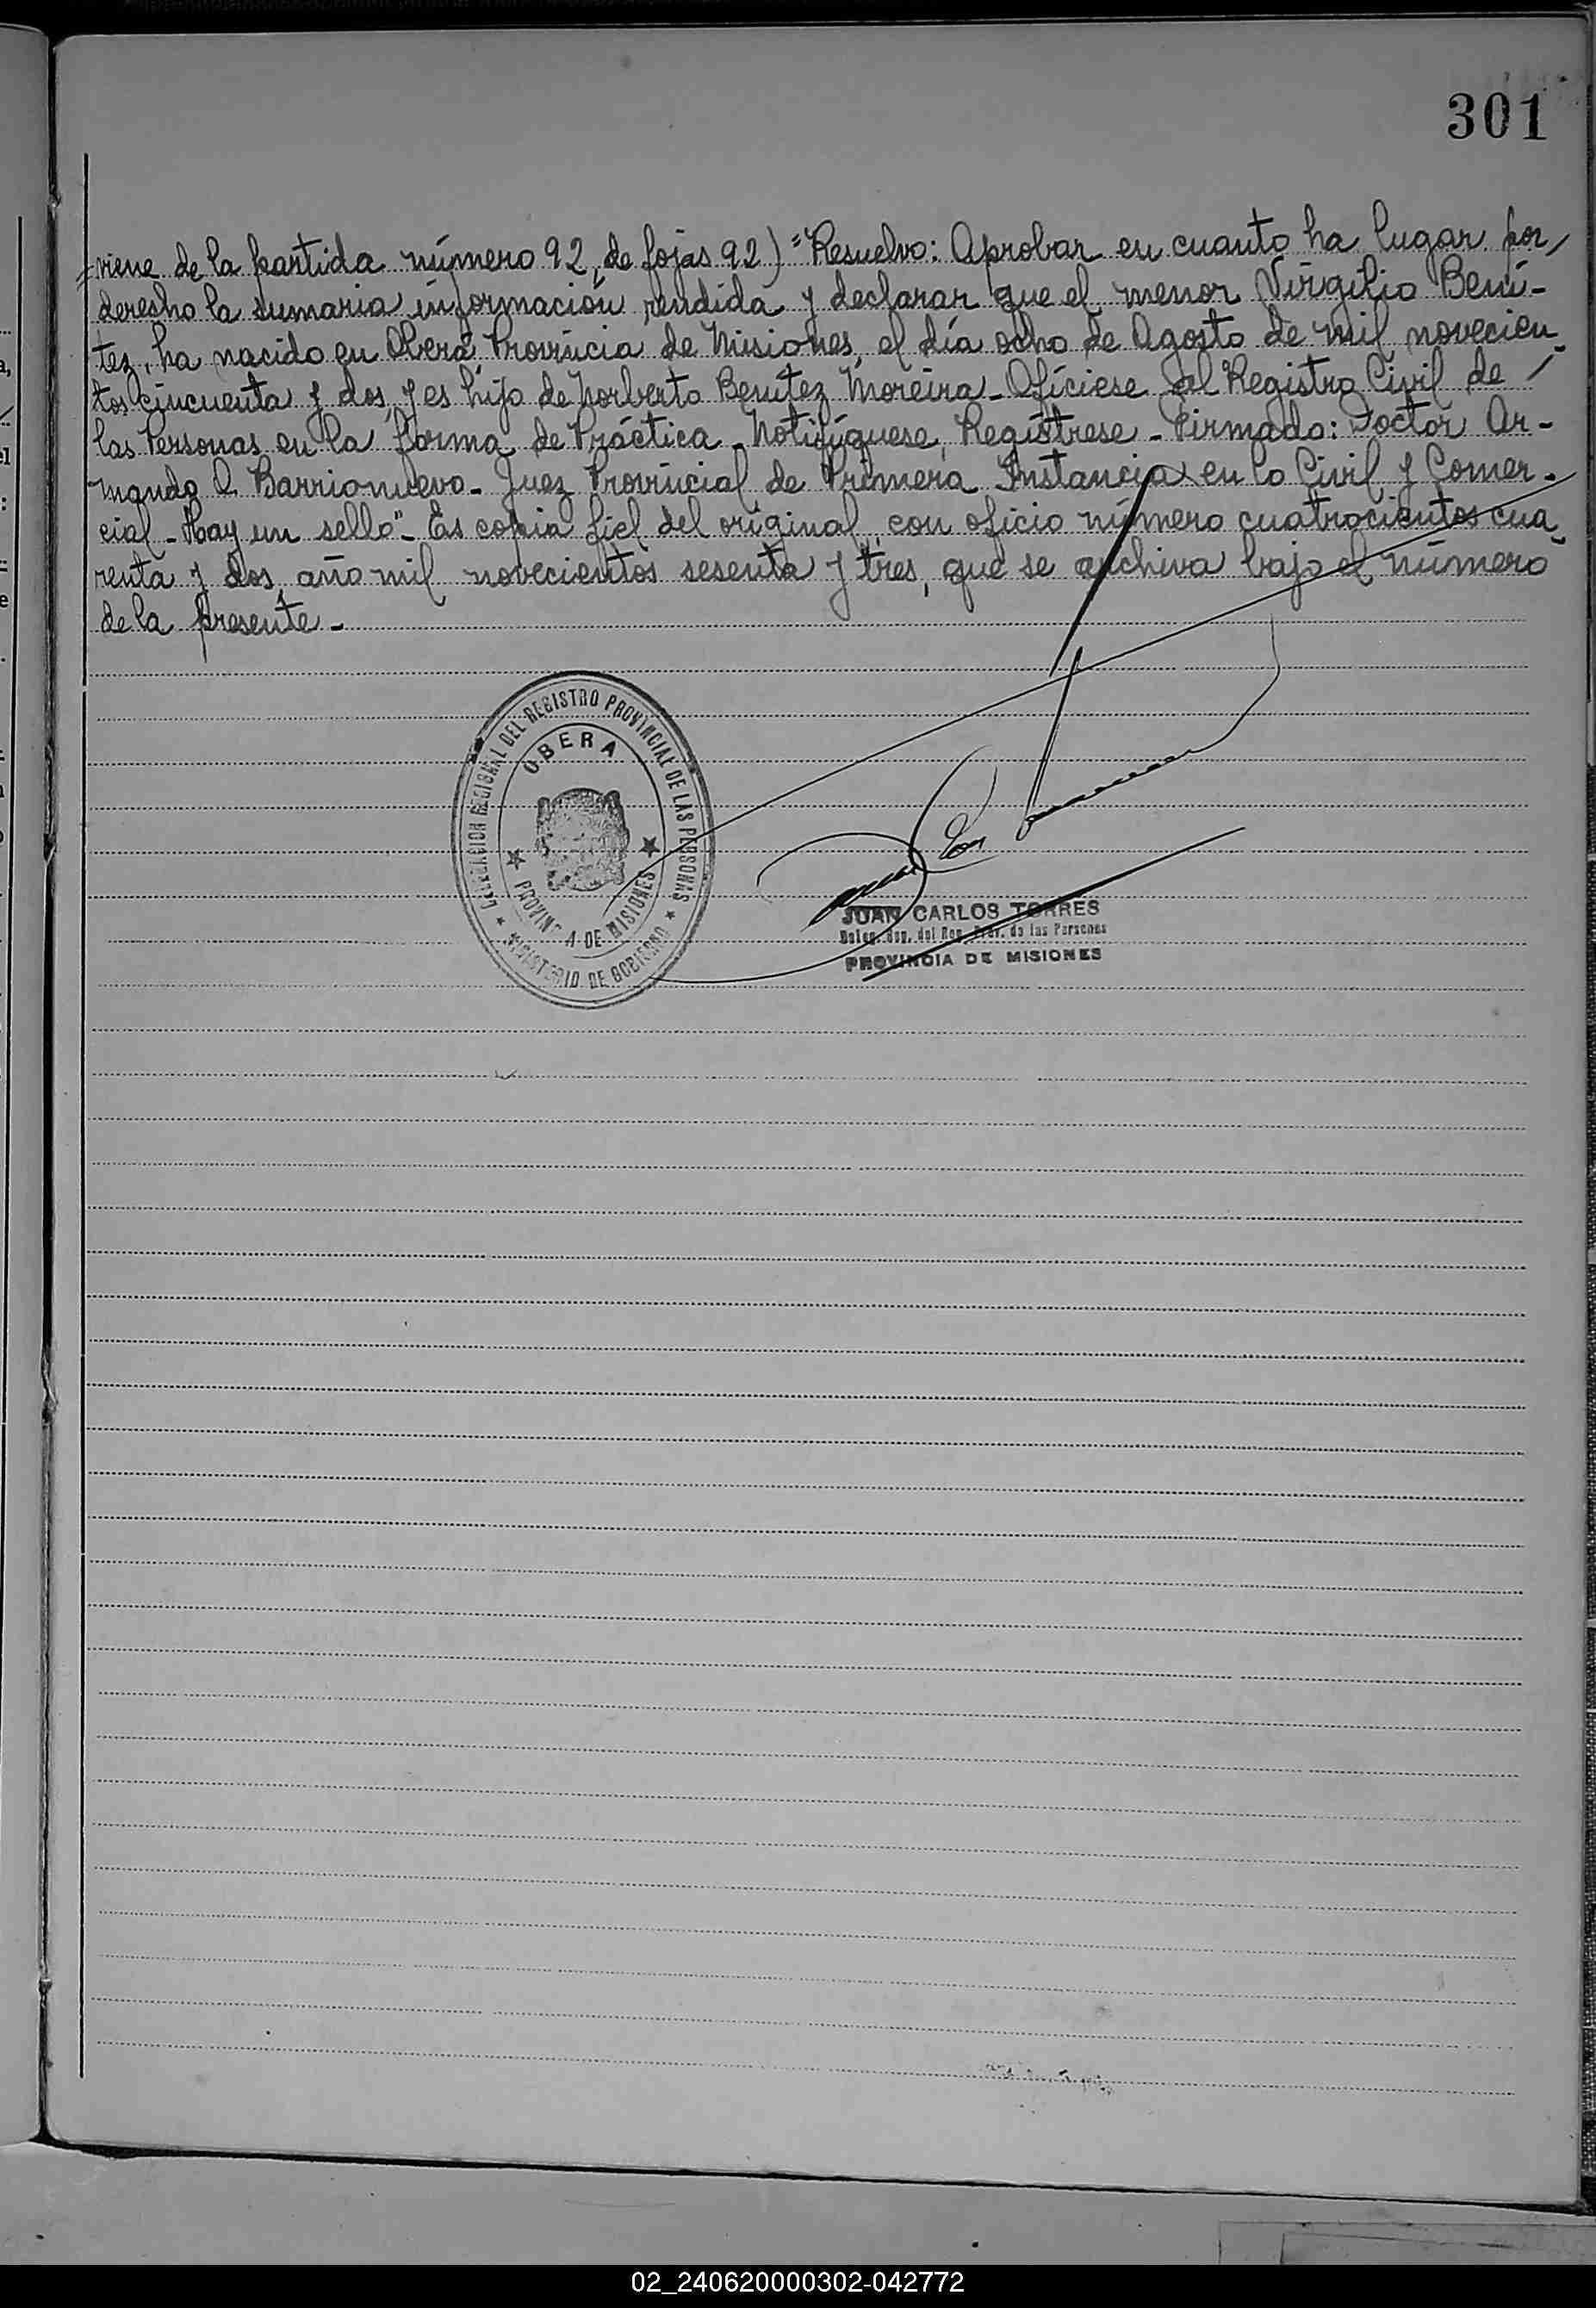 301
=viene de la partida número 92, de fojas 92) "Resuelvo: Aprobar en cuanto ha lugar por
derecho la sumaria información rendida y declarar que el menor Virgilio Bení-
tez, ha nacido en Oberá Provincia de Misiones, el día ocho de Agosto de mil novecien-
tos cincuenta y dos, y es hijo de Norberto Benítez Moreira - Ofíciese al Registro Civil de
las Personas en la forma de Práctica - Notifíquese, Regístrese - Firmado: Doctor Ar-
mando Q. Barrionuevo - Juez Provincial de Primera Instancia en lo Civil y Comer-
cial - Hay un sello" - Es copia fiel del original, con oficio número cuatrocientos cua-
renta y dos, año mil novecientos sesenta y tres, que se archiva bajo el número
de la presente -
DELEGACION REGIONAL DEL REGISTRO PROVINCIAL DE LAS PERSONAS
OBERA
PROVINCIA DE MISIONES
MINISTERIO DE GOBIERNO
JUAN CARLOS TORRES
Deleg. Reg. del Reg. Prov. de las Personas
PROVINCIA DE MISIONES
02_240620000302-042772